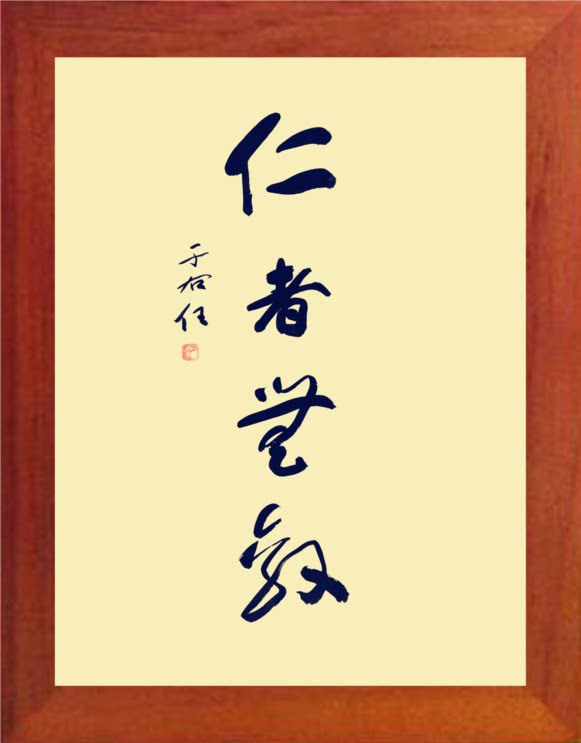 仁者無敵
于右任